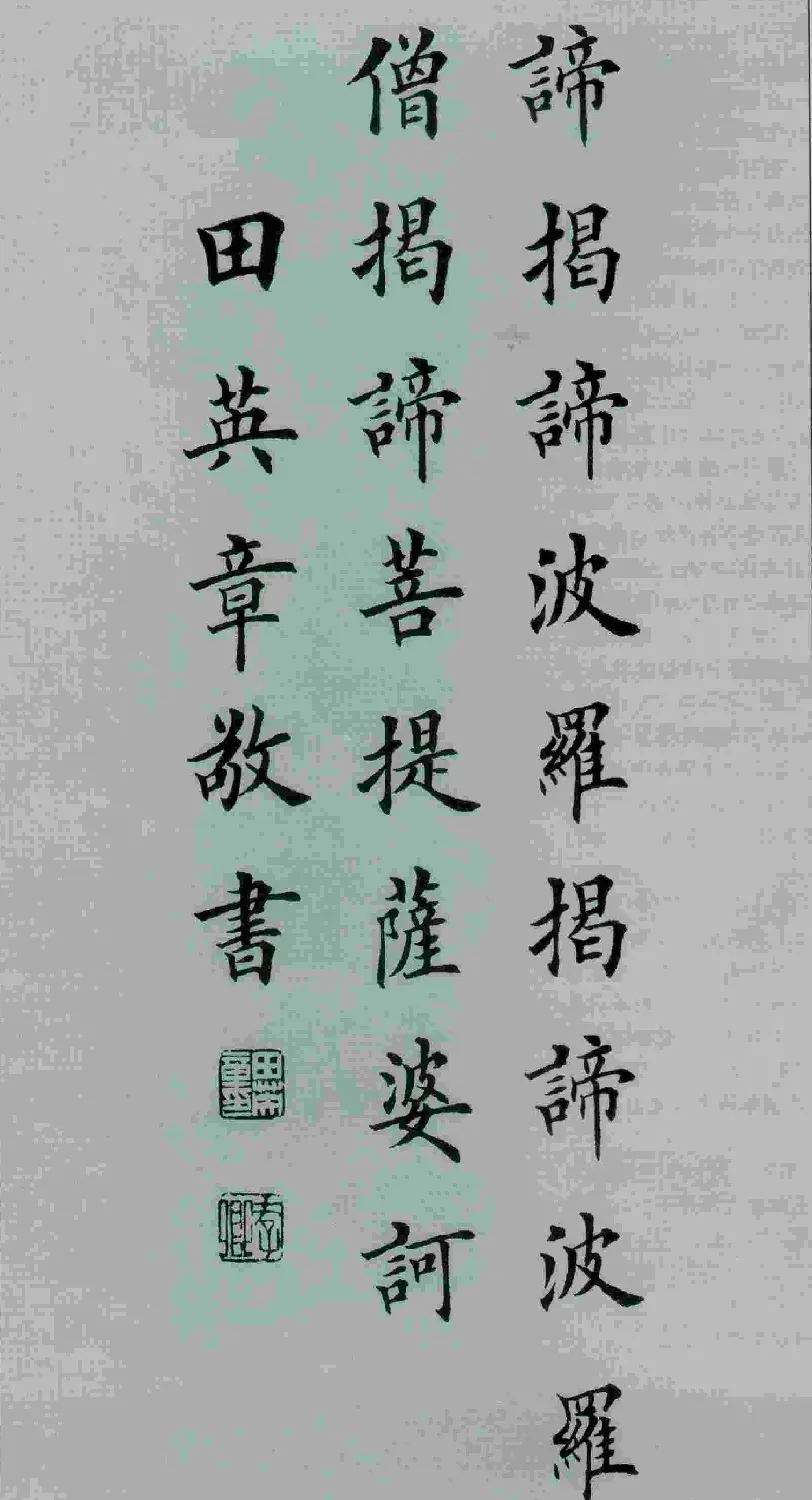 諦揭諦波羅揭諦波羅
僧揭諦菩提薩婆訶
田英章敬書